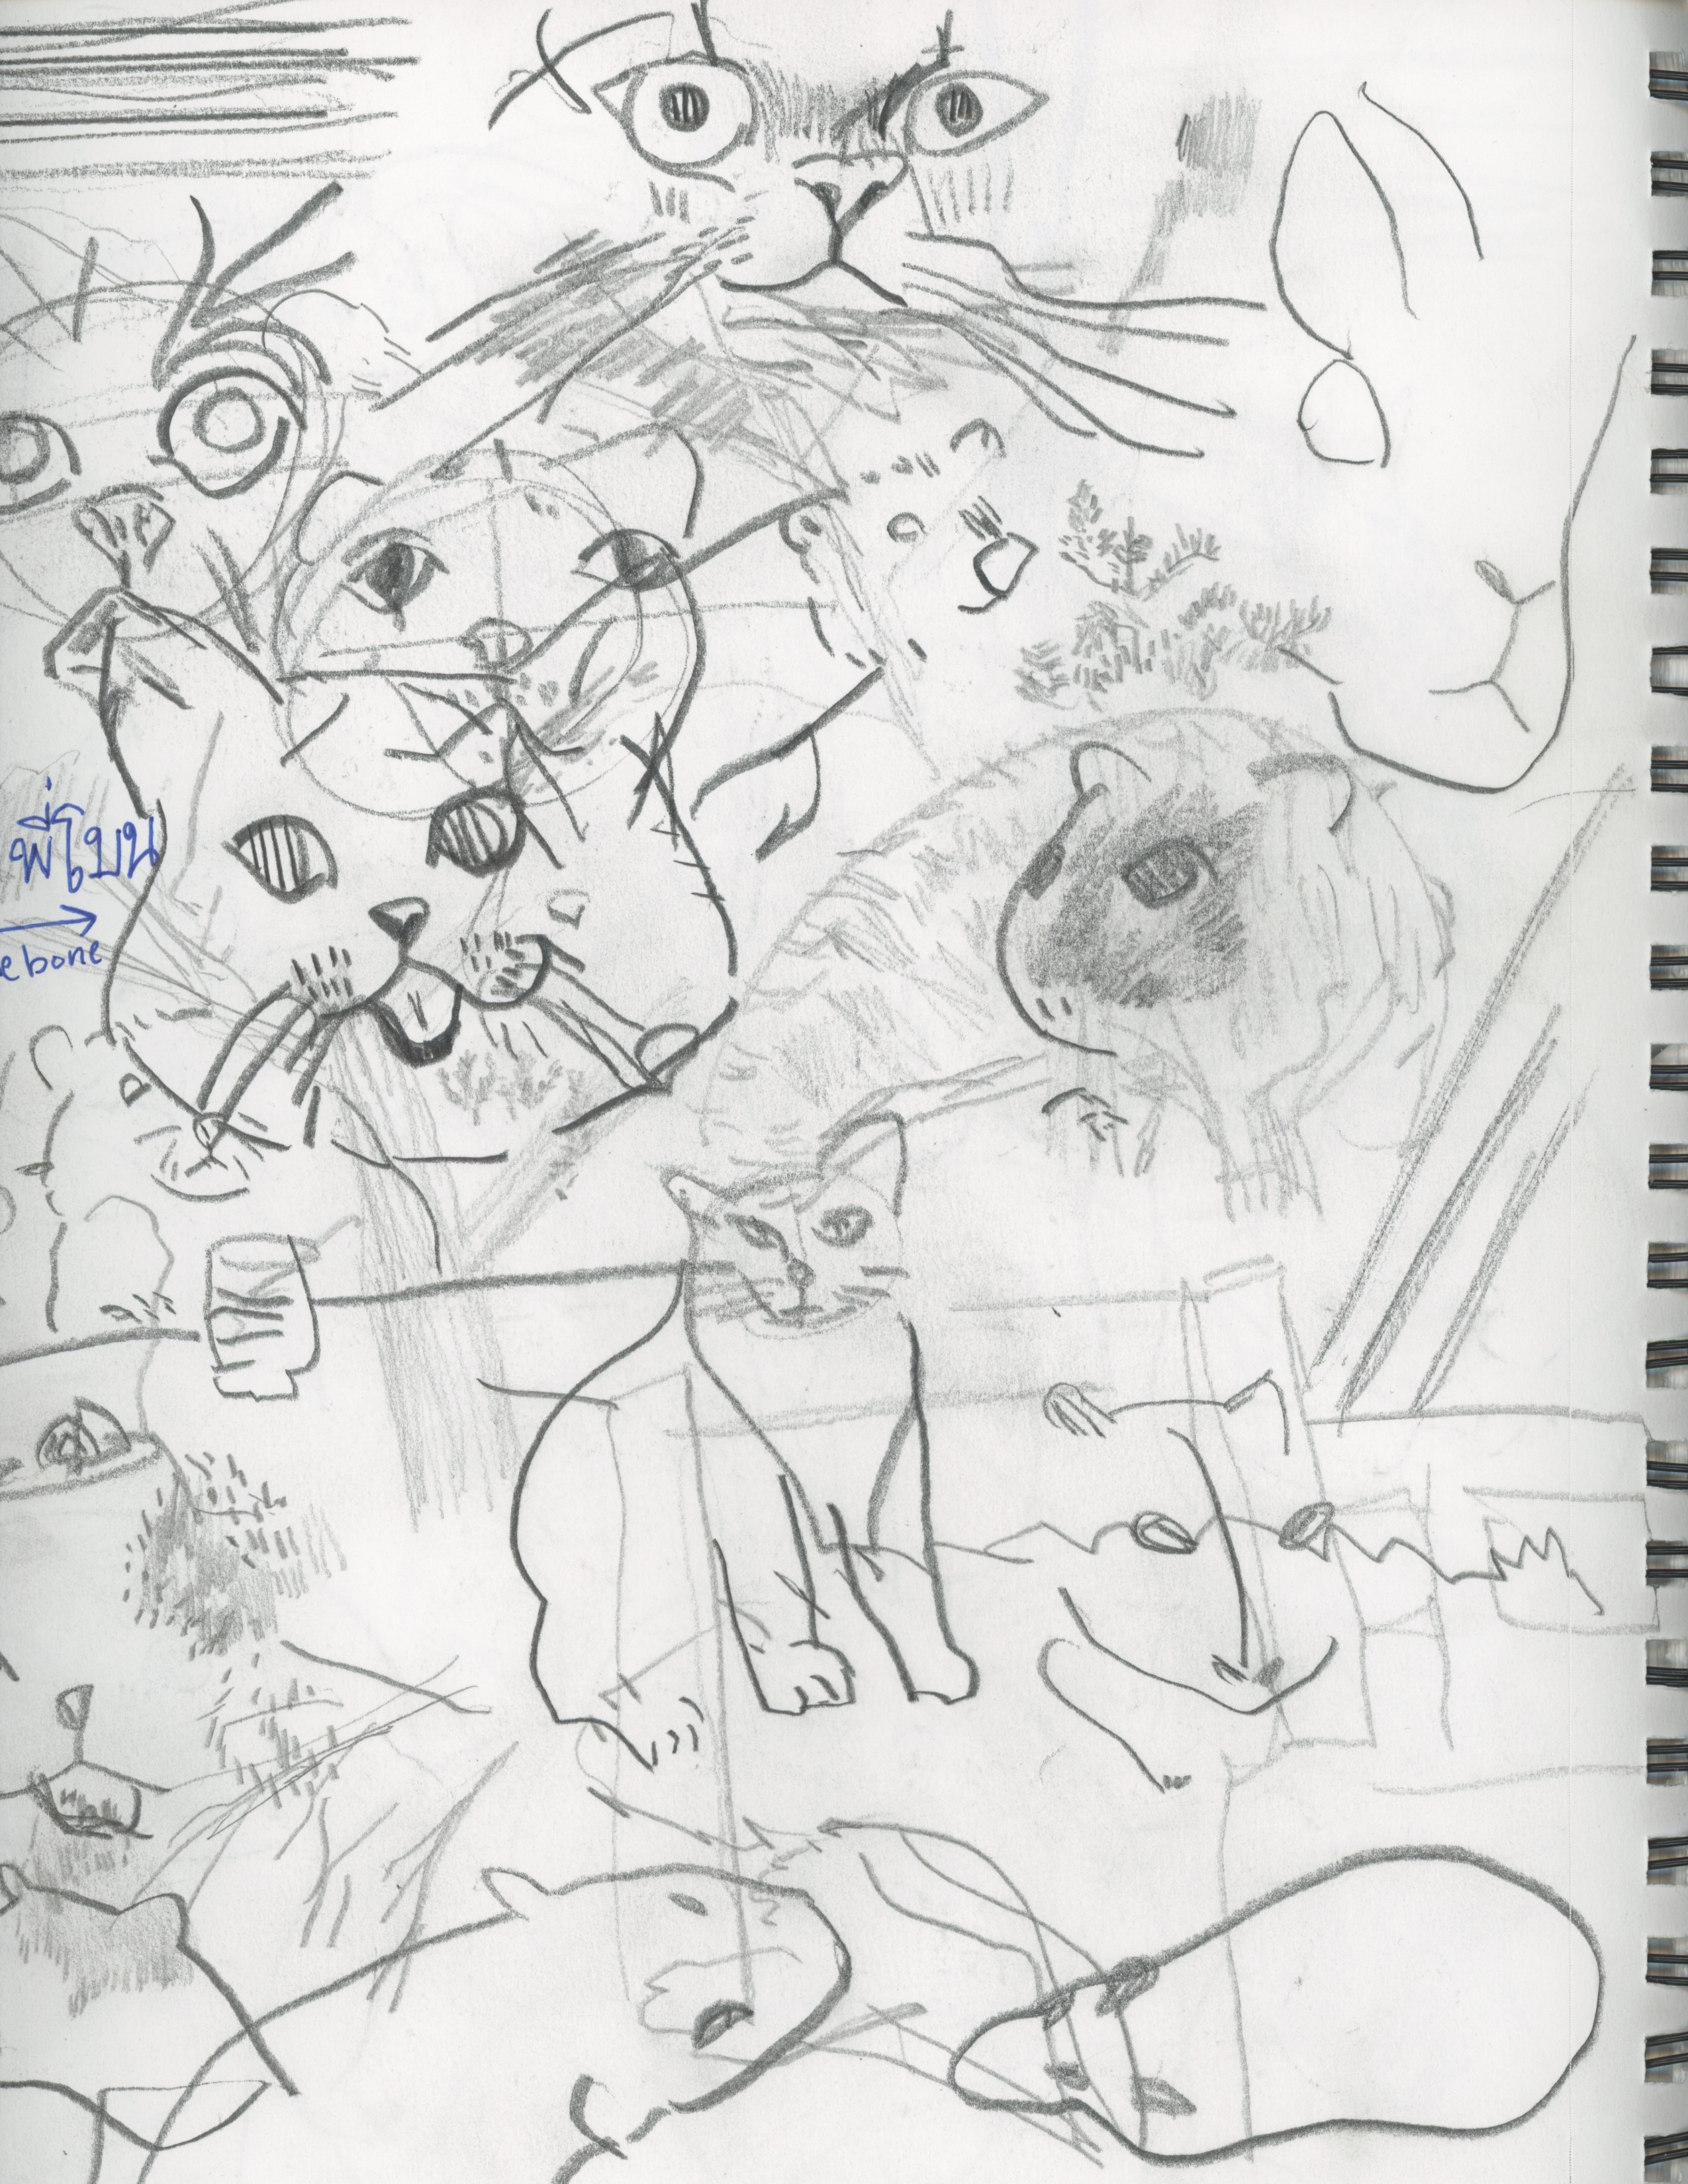 พี่โบน
e bone